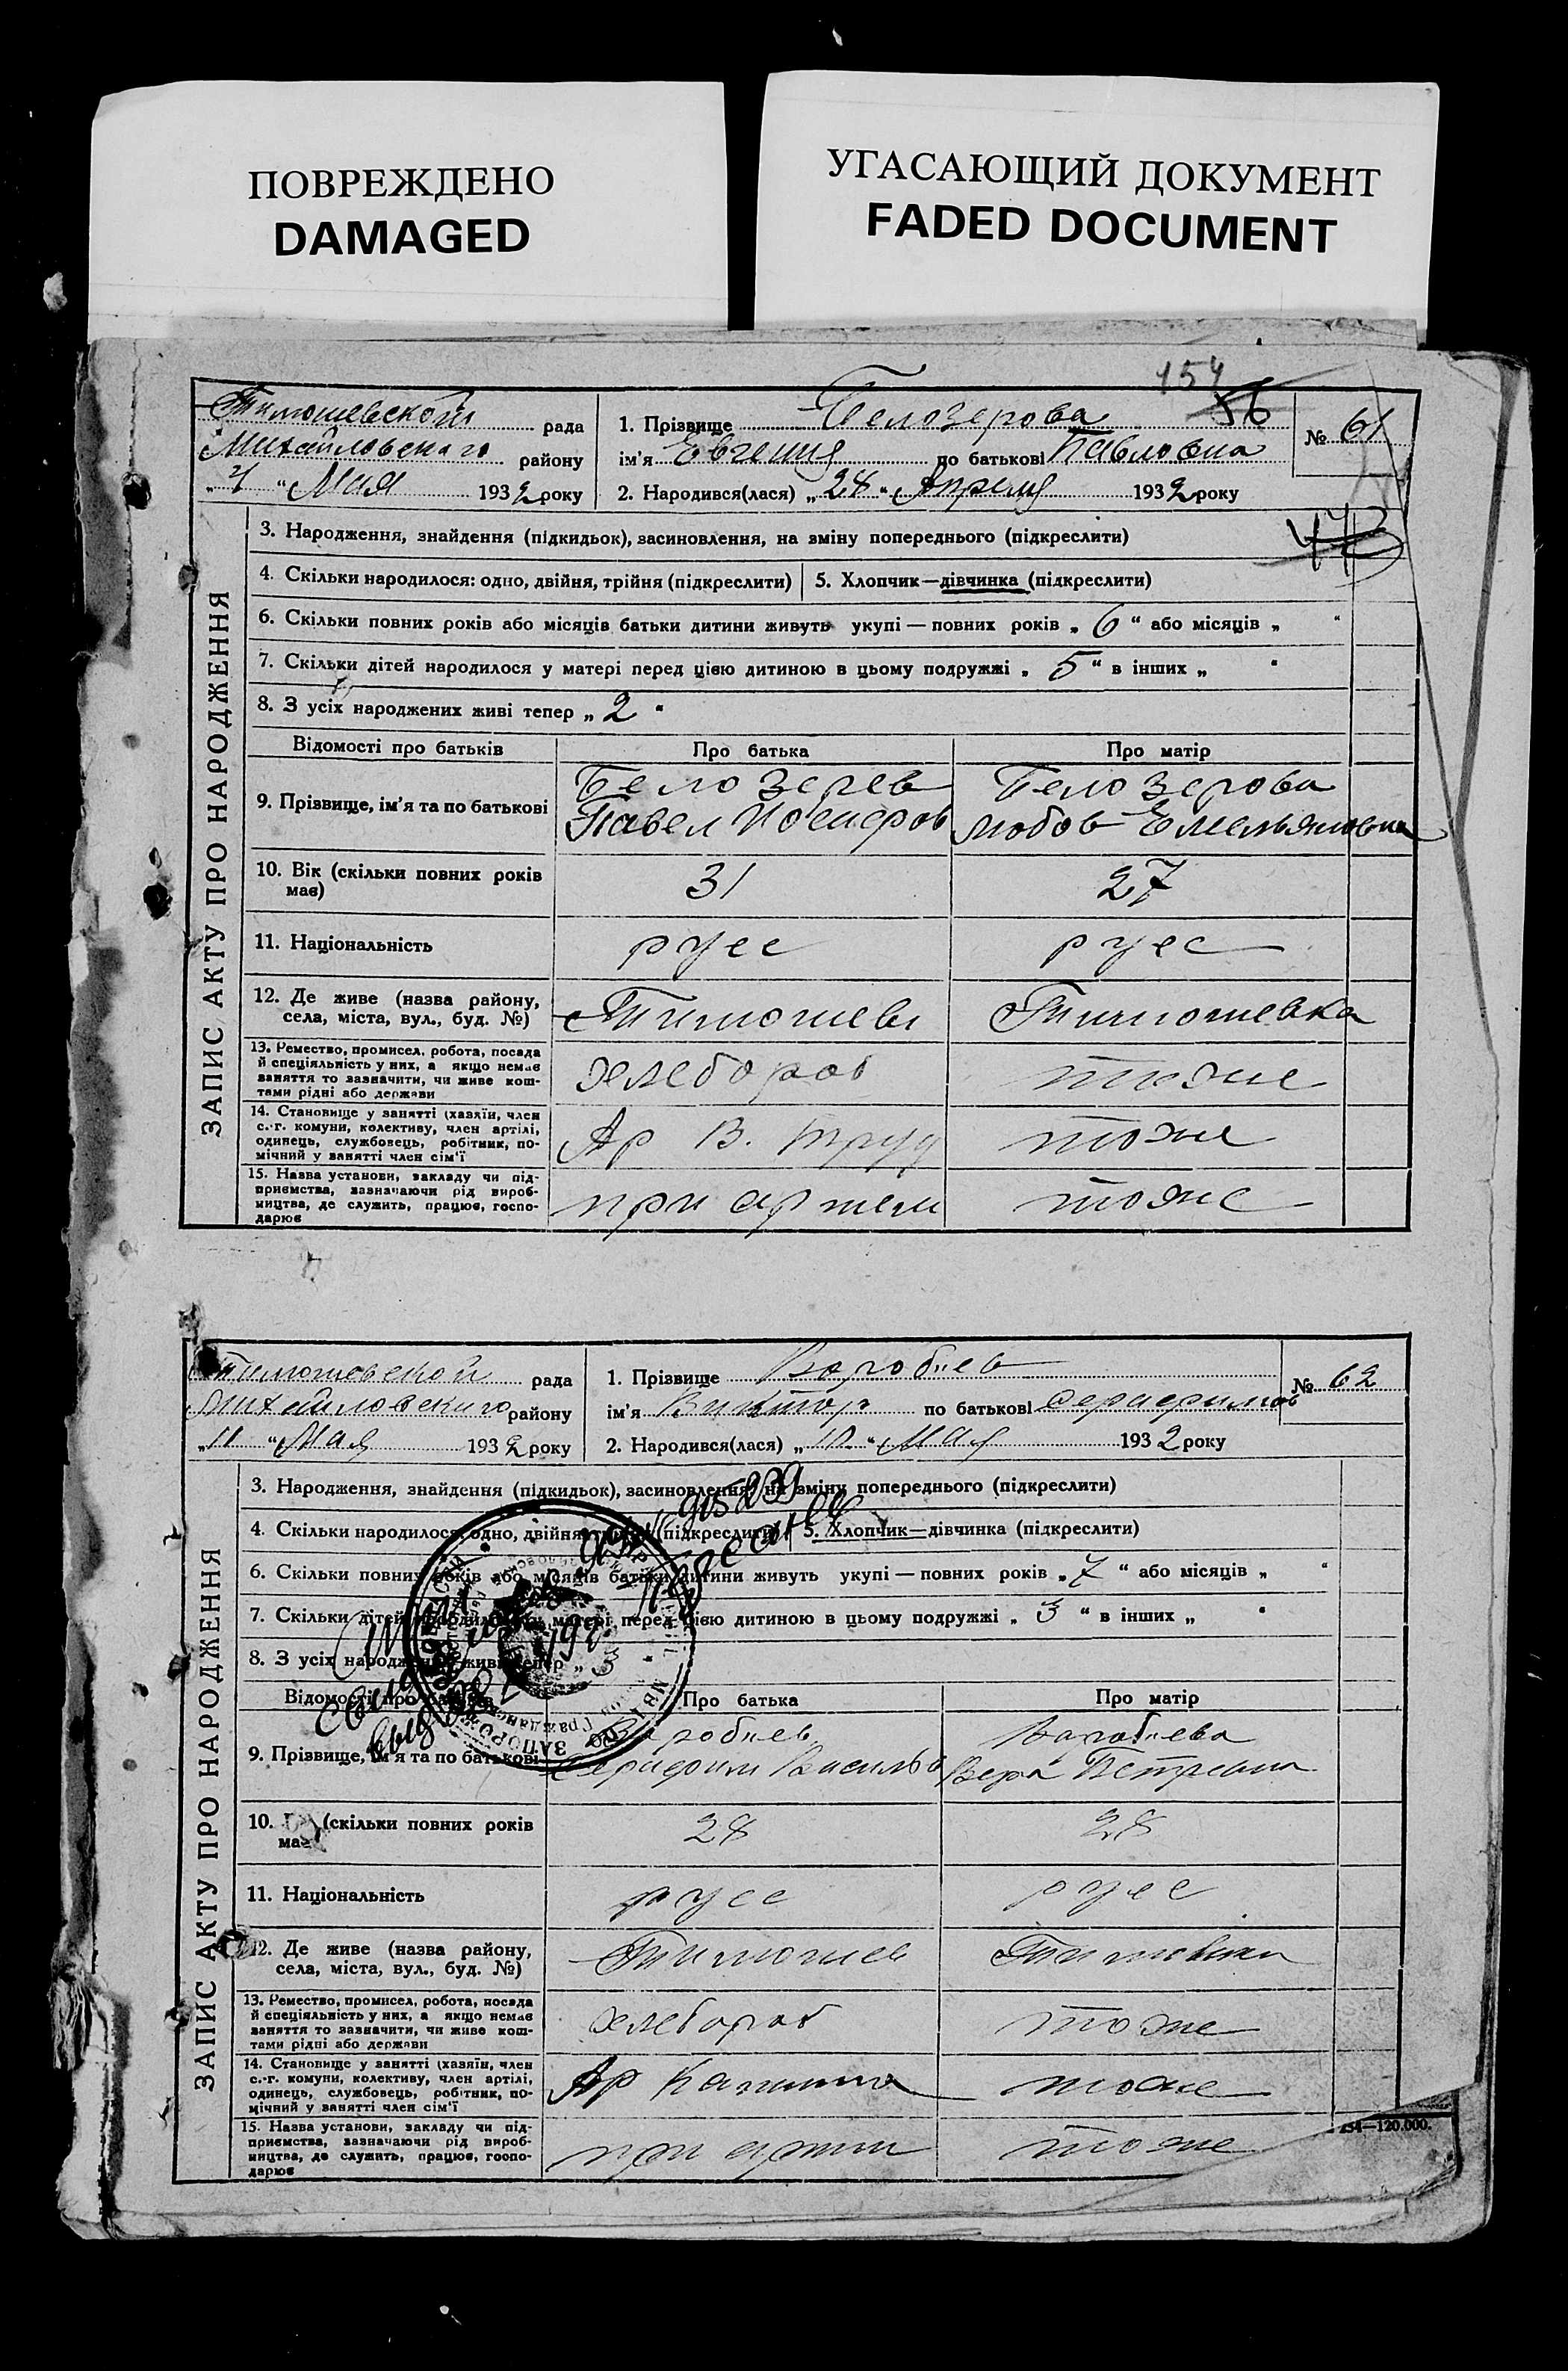 ПОВРЕЖДЕНО
DAMAGED
УГАСАЮЩИЙ ДОКУМЕНТ
FADED DOCUMENT
154
56
Тимошевской рада
Михайловского району
„4“ Мая 1932 року
1. Прізвище Белозерова
№ 61
ім'я Евгения по батькові Павловна
2. Народився(лася) „28“ Апреля 1932 року
ЗАПИС АКТУ ПРО НАРОДЖЕННЯ
3. Народження, знайдення (підкидьок), засиновлення, на зміну попереднього (підкреслити)
4. Скільки народилося: одно, двійня, трійня (підкреслити) 5. Хлопчик—дівчинка (підкреслити)
6. Скільки повних років або місяців батьки дитини живуть укупі — повних років „6“ або місяців „ “
7. Скільки дітей народилося у матері перед цією дитиною в цьому подружжі „5“ в інших „ “
8. З усіх народжених живі тепер „2“
Відомості про батьків Про батька Про матір
9. Прізвище, ім'я та по батькові
Белозерев Белозерова
Павел Иосифов Любов Емельяновна
10. Вік (скільки повних років має) 31 27
11. Національність русс русс
12. Де живе (назва району,
села, міста, вул., буд. №) Тимошевк Тимошевка
13. Ремество, промисел, робота, посада
й спеціяльність у них, а якщо немає
заняття то зазначити, чи живе кош-
тами рідні або держави
хлебороб тоже
14. Становище у занятті (хазяїн, член
с.-г. комуни, колективу, член артілі,
одинець, службовець, робітник, по-
мічний у занятті член сім'ї
Ар В. труд тоже
15. Назва установи, закладу чи під-
приємства, зазначаючи рід вироб-
ництва, де служить, працює, госпо-
дарює
при артели тоже
Тимошевской рада
Михайловского району
„11“ Мая 1932 року
1. Прізвище Воробьев
№ 62
ім'я Виктор по батькові Серафимов
2. Народився(лася) „10“ Мая 1932 року
ЗАПИС АКТУ ПРО НАРОДЖЕННЯ
3. Народження, знайдення (підкидьок), засиновлення, на зміну попереднього (підкреслити)
4. Скільки народилося: одно, двійня, (підкреслити) 5. Хлопчик—дівчинка (підкреслити)
6. Скільки повних років або місяців батьки дитини живуть укупі — повних років „7“ або місяців „ “
7. Скільки дітей народилося у матері перед цією дитиною в цьому подружжі „3“ в інших „ “
8. З усіх народжених живі тепер „3
Відомості про батьків Про батька Про матір
9. Прізвище, ім'я та по батькові
Воробьев Варобьева
Серафим Васильев Вера Петровна
10. (скільки повних років має) 28 28
11. Національність русс русс
12. Де живе (назва району,
села, міста, вул., буд. №) Тимошев Тимошевки
13. Ремество, промисел, робота, посада
й спеціяльність у них, а якщо немає
заняття то зазначити, чи живе кош-
тами рідні або держави
хлебороб тоже
14. Становище у занятті (хазяїн, член
с.-г. комуни, колективу, член артілі,
одинець, службовець, робітник, по-
мічний у занятті член сім'ї
Ар Калинина тоже
15. Назва установи, закладу чи під-
приємства, зазначаючи рід вироб-
ництва, де служить, працює, госпо-
дарює
при артели тоже
254—120.000.